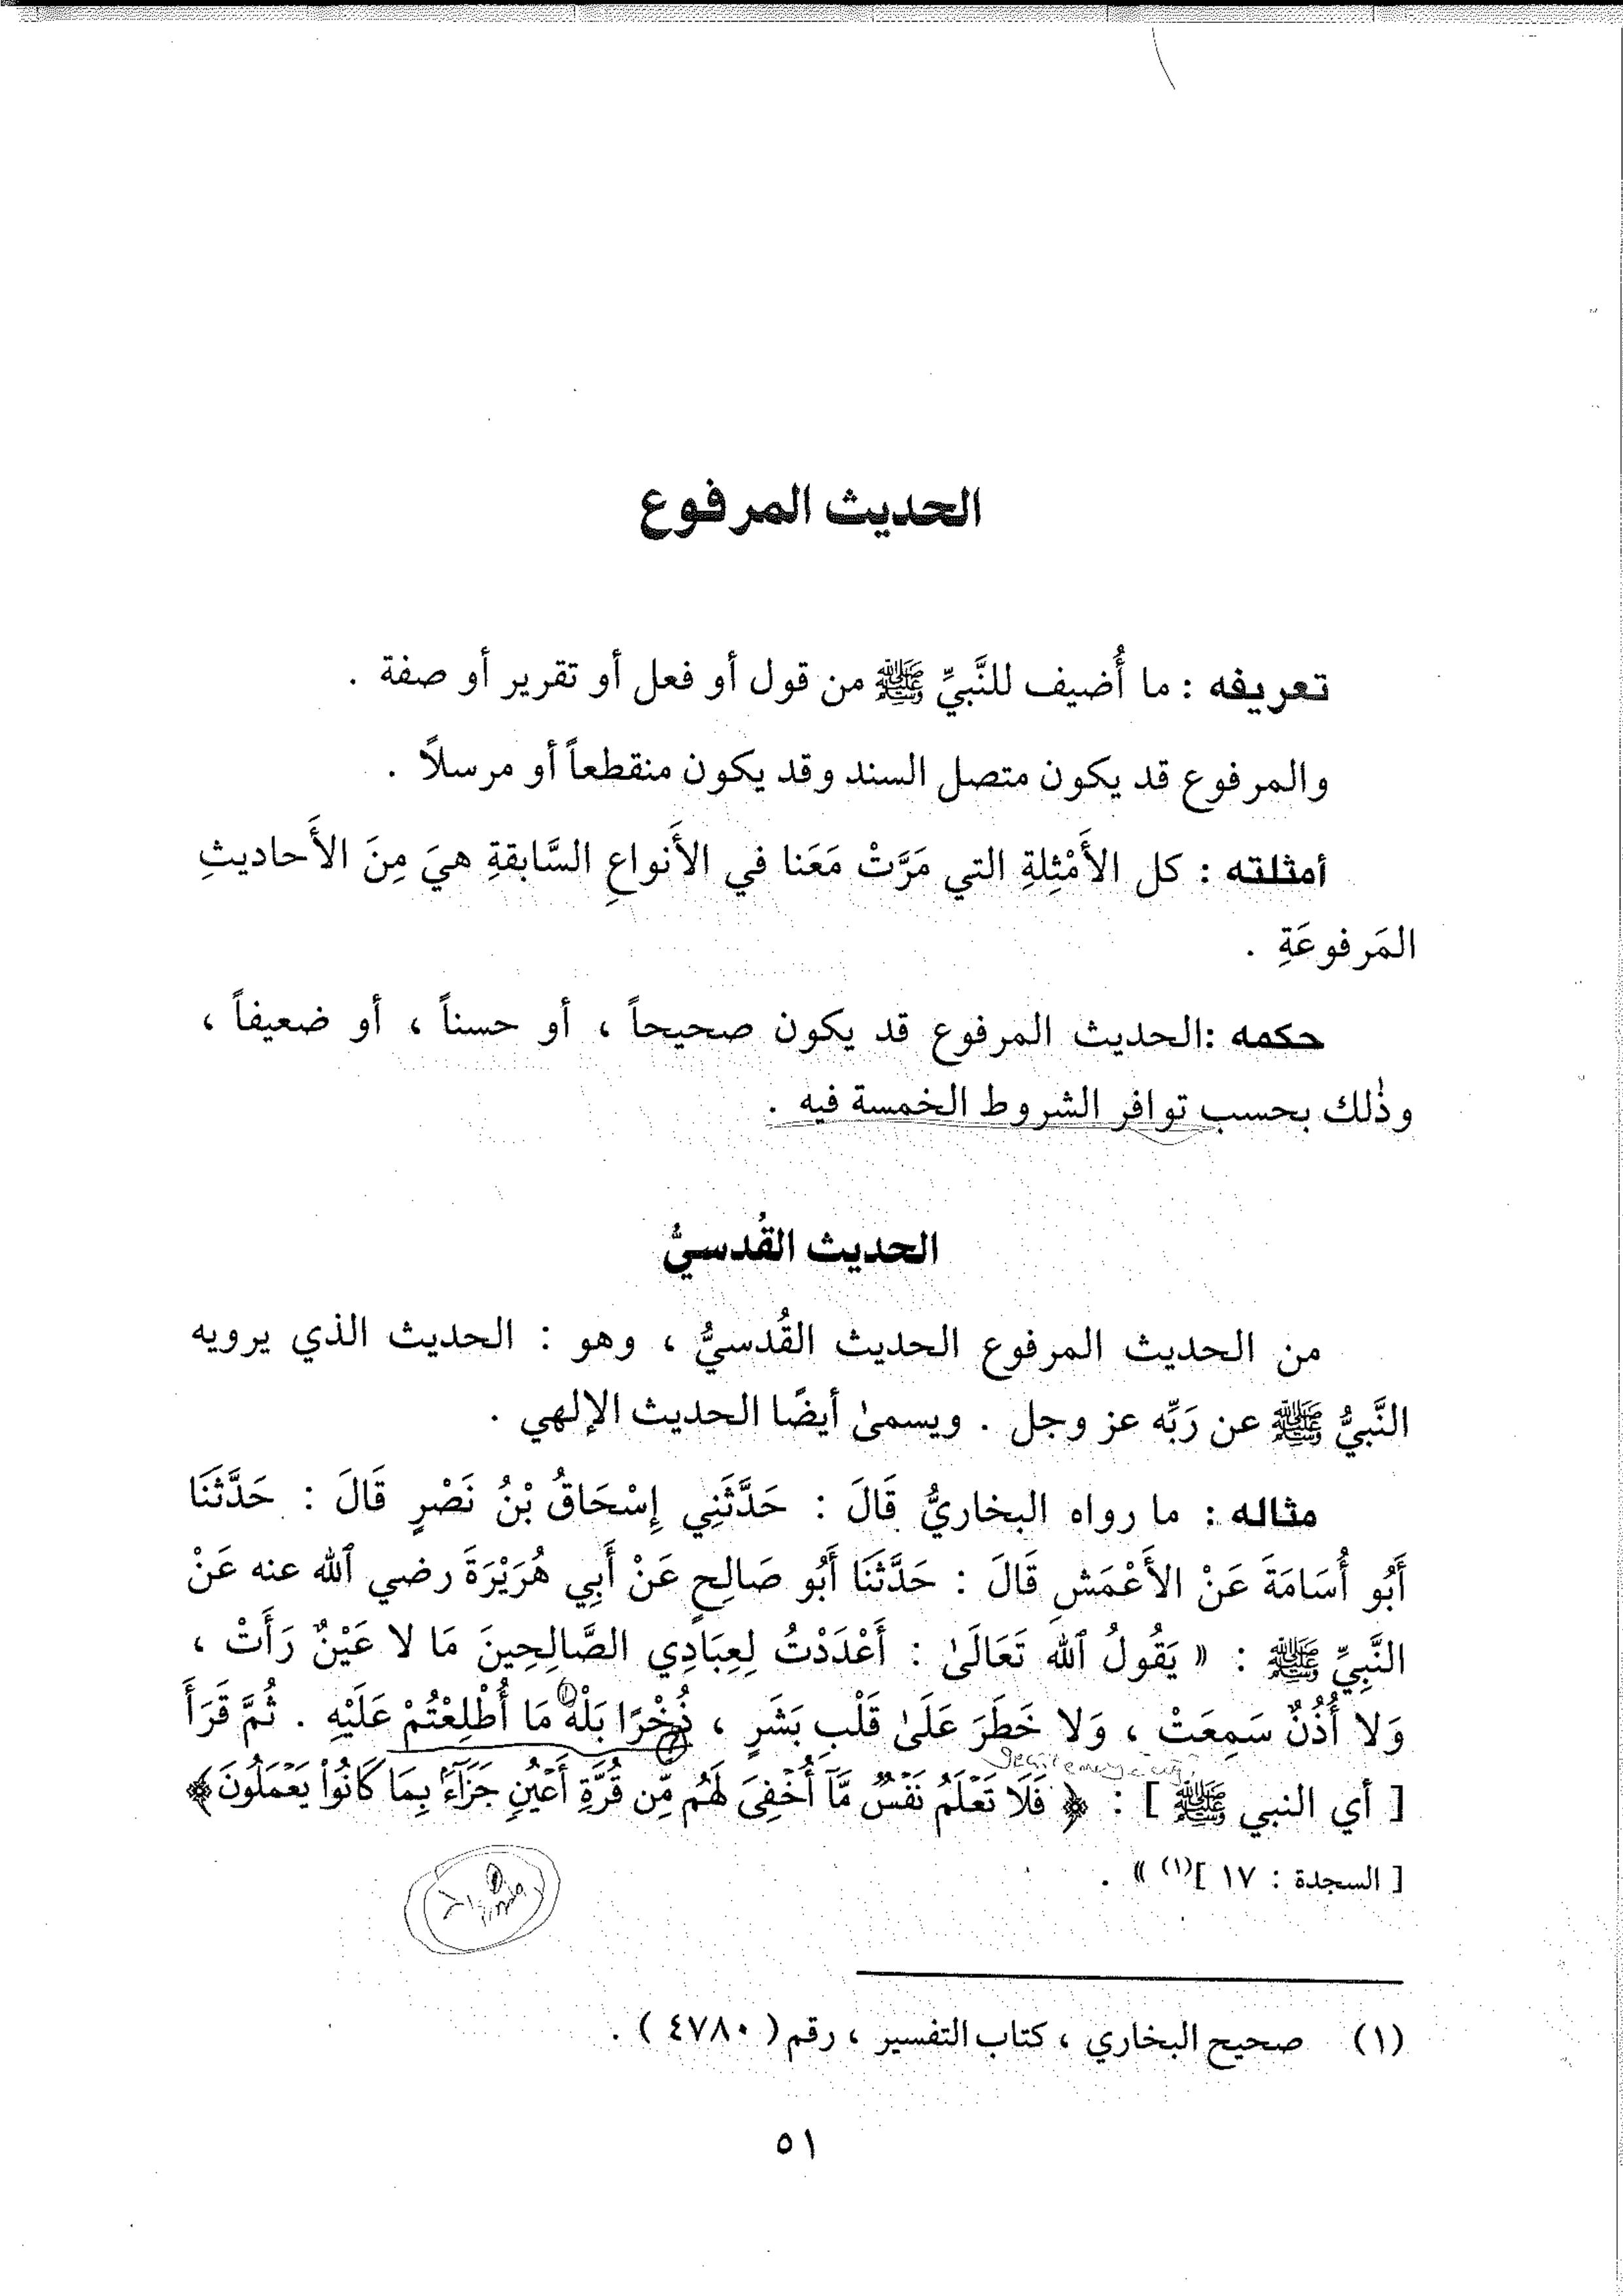 الحديث المرفوع
تعريفه : ما أُضيف للنَّبيِّ ﷺ من قول أو فعل أو تقرير أو صفة .
والمرفوع قد يكون متصل السند وقد يكون منقطعاً أو مرسلاً .
أمثلته : كل الأَمْثِلةِ التي مَرَّتْ مَعَنا في الأَنواعِ السَّابقةِ هيَ مِنَ الأَحاديثِ
المَرفوعَةِ .
حكمه :الحديث المرفوع قد يكون صحيحاً ، أو حسناً ، أو ضعيفاً ،
وذٰلك بحسب توافر الشروط الخمسة فيه .
الحديث القُدسيُّ
من الحديث المرفوع الحديث القُدسيُّ ، وهو : الحديث الذي يرويه
النَّبيُّ ﷺ عن رَبِّه عز وجل . ويسمىٰ أيضًا الحديث الإلهي .
مثاله : ما رواه البخاريُّ قَالَ : حَدَّثَنِي إِسْحَاقُ بْنُ نَصْرٍ قَالَ : حَدَّثَنَا
أَبُو أُسَامَةَ عَنْ الأَعْمَشِ قَالَ : حَدَّثَنَا أَبُو صَالِحٍ عَنْ أَبِي هُرَيْرَةَ رضي ٱلله عنه عَنْ
النَّبِيِّ ﷺ : « يَقُولُ ٱلله تَعَالَىٰ : أَعْدَدْتُ لِعِبَادِي الصَّالِحِينَ مَا لا عَيْنٌ رَأَتْ ،
وَلا أُذُنٌ سَمِعَتْ ، وَلا خَطَرَ عَلَىٰ قَلْبِ بَشَرٍ ، ذُخْرًا بَلْهَ مَا أُطْلِعْتُمْ عَلَيْهِ . ثُمَّ قَرَأَ
[ أي النبي ﷺ ] : ﴿ فَلَا تَعْلَمُ نَفْسٌ مَّآ أُخْفِىَ لَهُم مِّن قُرَّةِ أَعْيُنٍ جَزَآءًۢ بِمَا كَانُوا۟ يَعْمَلُونَ ﴾
[ السجدة : ١٧ ](١) » .
(١) صحيح البخاري ، كتاب التفسير ، رقم ( ٤٧٨٠ ) .
٥١